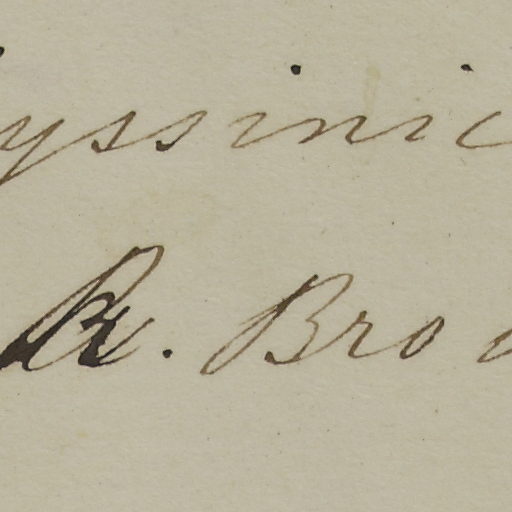 yssinic
R. Bro